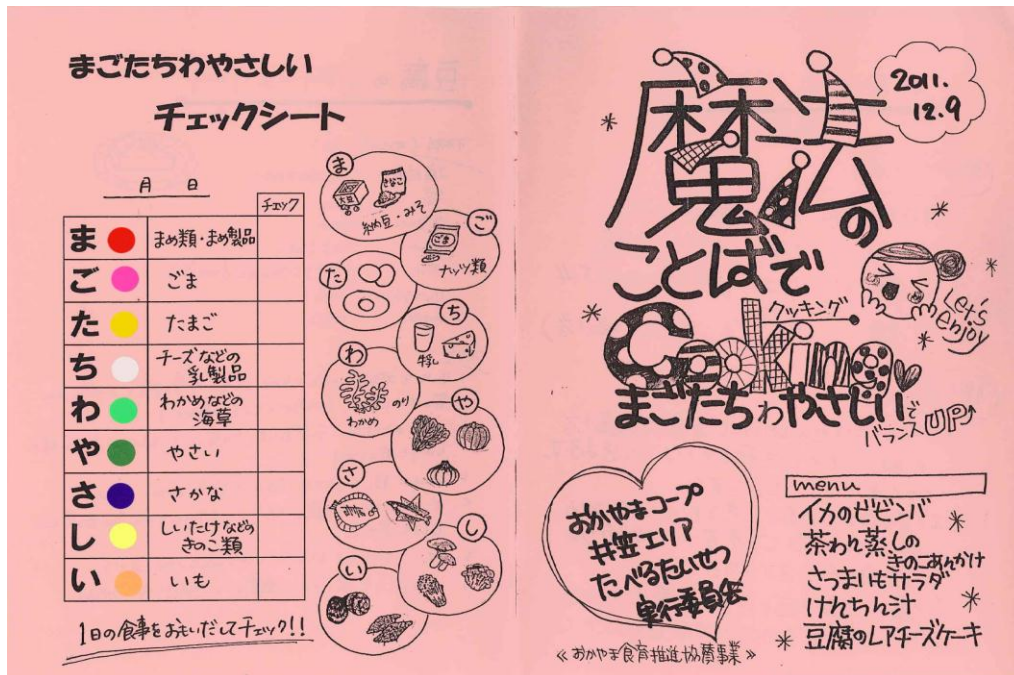 まごたちわやさしい
チェックシート
月 日
チェック
ま まめ類・まめ製品
ご ごま
た たまご
ち チーズなどの
乳製品
わ わかめなどの
海草
や やさい
さ さかな
し しいたけなどの
きのこ類
い いも
1日の食事をおもいだしてチェック!!
ま
大豆
きなこ
納豆・みそ
ご
ごま
ナッツ類
た
ち
牛乳
わ
のり
わかめ
や
さ
し
い
2011.
12.9
魔法の
ことばで
クッキング
Cooking
Let's
enjoy
まごたちわやさしいで
バランスUP↑
おかやまコープ
井笠エリア
たべるたいせつ
実行委員会
≪おかやま食育推進協賛事業≫
menu
イカのビビンバ
茶わん蒸しの
きのこあんかけ
さつまいもサラダ
けんちん汁
豆腐のレアチーズケーキ